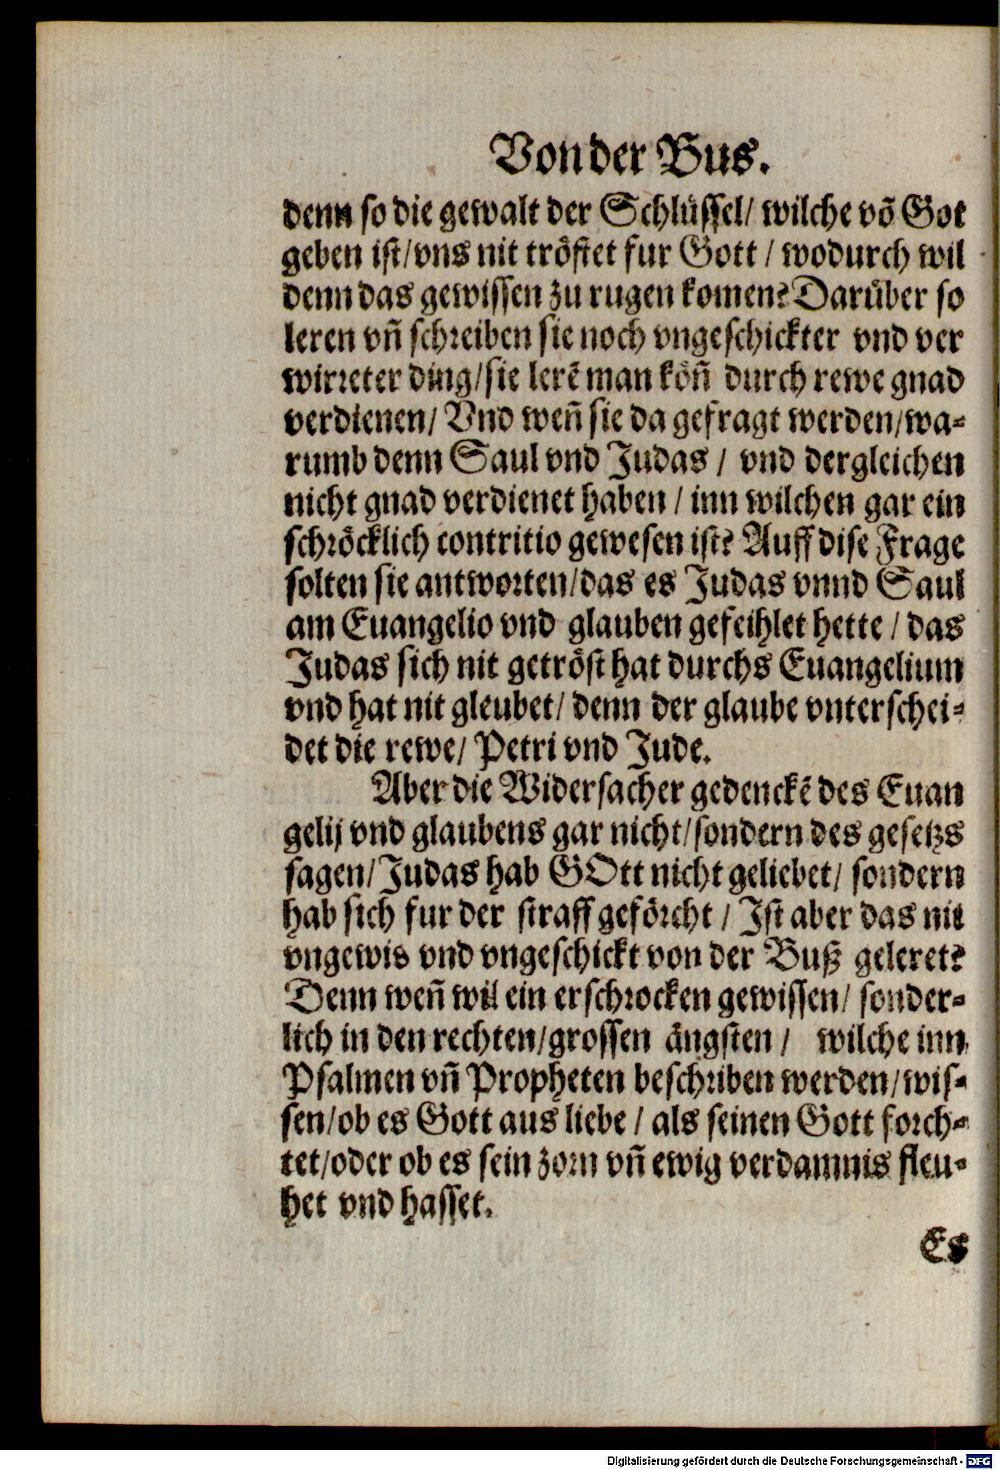 Von der Bus.
denn so die gewalt der Schlüssel/ wilche võ Got
geben ist/vns nit tröstet fur Gott / wodurch wil
denn das gewissen zu rugen komen? Darüber so
leren vñ schreiben sie noch vngeschickter vnd ver
wirreter ding/sie lerẽ man köñ durch rewe gnad
verdienen/ Vnd weñ sie da gefragt werden/wa-
rumb denn Saul vnd Judas / vnd dergleichen
nicht gnad verdienet haben / inn wilchen gar ein
schröcklich contritio gewesen ist? Auff dise Frage
solten sie antworten/das es Judas vnnd Saul
am Euangelio vnd glauben gefeihlet hette / das
Judas sich nit getröst hat durchs Euangelium
vnd hat nit gleubet/ denn der glaube vnterschei-
det die rewe/ Petri vnd Jude.
Aber die Widersacher gedenckẽ des Euan
gelij vnd glaubens gar nicht/sondern des gesetzs
sagen/Judas hab GOtt nicht geliebet/ sondern
hab sich fur der straff geförcht / Ist aber das nit
vngewis vnd vngeschickt von der Buß geleret?
Denn weñ wil ein erschrocken gewissen/ sonder-
lich in den rechten/grossen ängsten / wilche inn
Psalmen vñ Propheten beschriben werden/wis-
sen/ob es Gott aus liebe / als seinen Gott forch-
tet/oder ob es sein zorn vñ ewig verdamnis fleu-
het vnd hasset.
Es
Digitalisierung gefördert durch die Deutsche Forschungsgemeinschaft - DFG